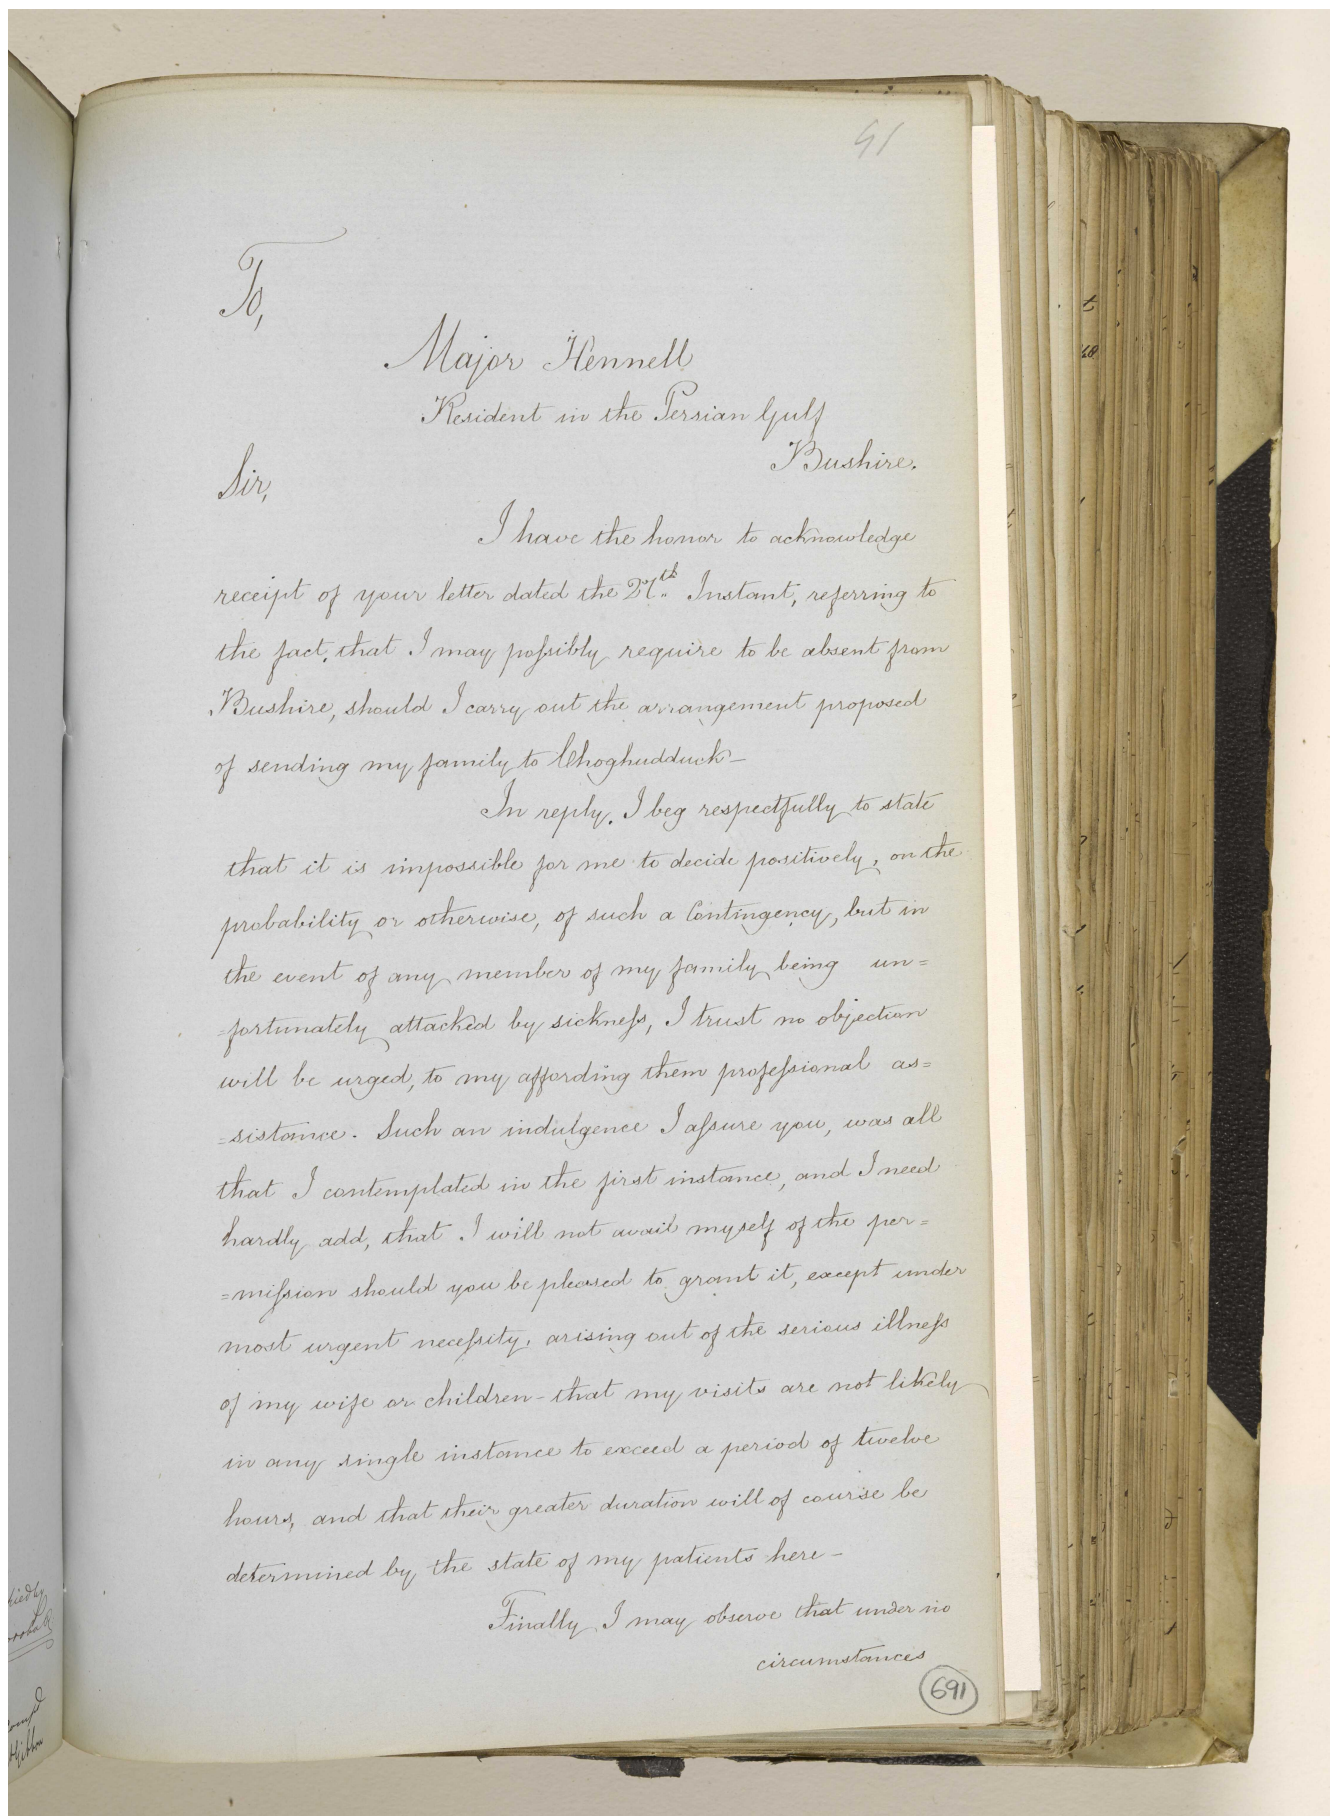 41
To,
Major Hennell
Resident in the Persian Gulf
Bushire.
Sir,
I have the honor to acknowledge
receipt of your letter dated the 27th Instant, referring to
the fact, that I may poſsibly require to be absent from
Bushire, should I carry out the arrangement proposed
of sending my family to Choghudduck—
In reply, I beg respectfully to state
that it is impossible for me to decide positively, on the
probability or otherwise, of such a Contingency, but in
the event of any member of my family being un=
=fortunately attacked by sickneſs, I trust no objection
will be urged, to my affording them profeſsional as=
=sistance. Such an indulgence I aſsure you, was all
that I contemplated in the first instance, and I need
hardly add, that I will not avail myself of the per=
=miſsion should you be pleased to grant it, except under
most urgent neceſsity, arising out of the serious illneſs
of my wife or children – that my visits are not likely
in any single instance to exceed a period of twelve
hours, and that their greater duration will of course be
determined by the state of my patients here –
Finally, I may observe that under no
circumstances
691